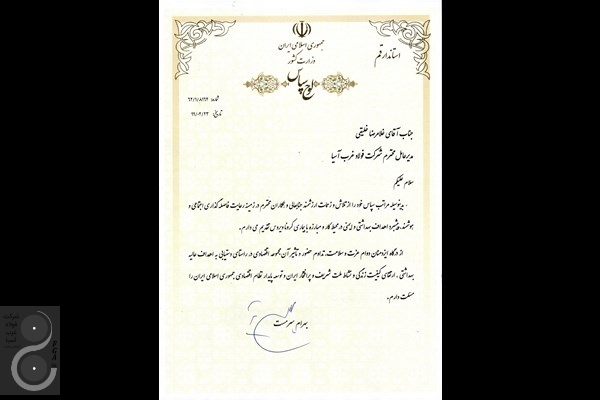 جمهوری اسلامی ایران
وزارت کشور
استاندار قم
لوح سپاس
شماره: ۶۲/۱/۸۱۹۲
تاریخ: ۹۹/۰۲/۲۳
جناب آقای غلامرضا خلیقی
مدیرعامل محترم شرکت فولاد غرب آسیا
سلام علیکم
بدینوسیله مراتب سپاس خود را از تلاش و زحمات ارزشمند جنابعالی و همکاران محترم در زمینه رعایت فاصله گذاری اجتماعی و
هوشمند، پیشبرد اهداف بهداشتی و ایمنی در محیط کار و مبارزه با بیماری کرونا ویروس تقدیم می دارم.
از درگاه ایزدمنان دوام عزت و سلامت، تداوم حضور و تأثیر آن مجموعه اقتصادی در راستای دستیابی به اهداف عالیه
بهداشتی، ارتقای کیفیت زندگی و نشاط ملت شریف و پرافتخار ایران و توسعه پایدار نظام اقتصادی جمهوری اسلامی ایران را
مسئلت دارم.
بهرام سرمست
شرکت
فولاد
غرب
آسیا